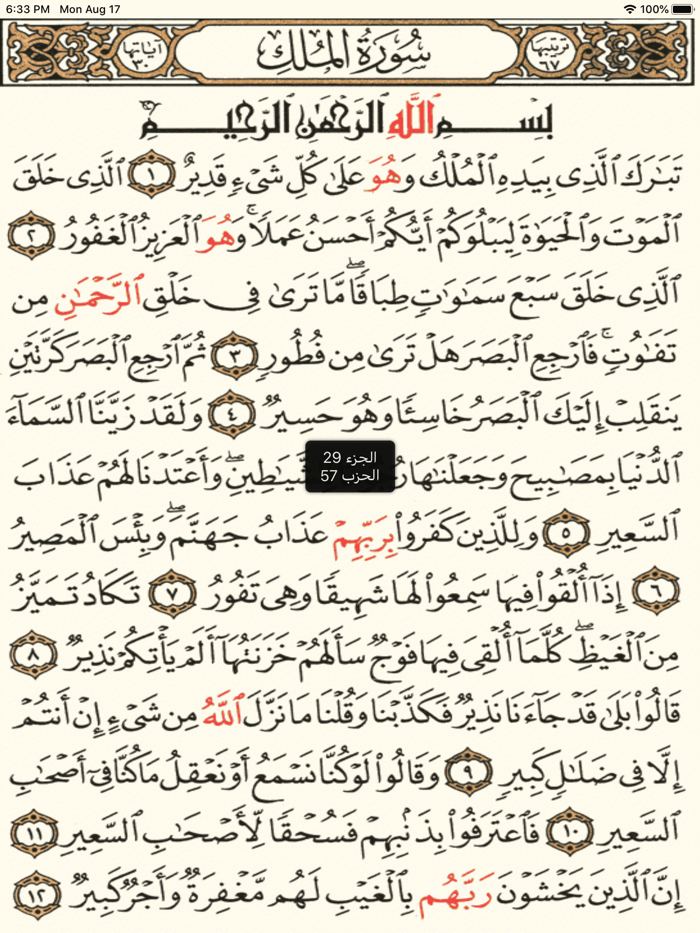 6:33 PM Mon Aug 17 100%
آياتها ٣٠ سُورَةُ المُلْكِ ترتيبها ٦٧
بِسْمِ اللَّهِ الرَّحْمَٰنِ الرَّحِيمِ
تَبَٰرَكَ ٱلَّذِى بِيَدِهِ ٱلْمُلْكُ وَهُوَ عَلَىٰ كُلِّ شَىْءٍ قَدِيرٌ ١ ٱلَّذِى خَلَقَ
ٱلْمَوْتَ وَٱلْحَيَوٰةَ لِيَبْلُوَكُمْ أَيُّكُمْ أَحْسَنُ عَمَلًا ۚ وَهُوَ ٱلْعَزِيزُ ٱلْغَفُورُ ٢
ٱلَّذِى خَلَقَ سَبْعَ سَمَٰوَٰتٍ طِبَاقًا ۖ مَّا تَرَىٰ فِى خَلْقِ ٱلرَّحْمَٰنِ مِن
تَفَٰوُتٍ ۖ فَٱرْجِعِ ٱلْبَصَرَ هَلْ تَرَىٰ مِن فُطُورٍ ٣ ثُمَّ ٱرْجِعِ ٱلْبَصَرَ كَرَّتَيْنِ
يَنقَلِبْ إِلَيْكَ ٱلْبَصَرُ خَاسِئًا وَهُوَ حَسِيرٌ ٤ وَلَقَدْ زَيَّنَّا ٱلسَّمَآءَ
ٱلدُّنْيَا بِمَصَٰبِيحَ وَجَعَلْنَٰهَا وَأَعْتَدْنَا لَهُمْ عَذَابَ
الجزء 29
الحزب 57
ٱلسَّعِيرِ ٥ وَلِلَّذِينَ كَفَرُوا۟ بِرَبِّهِمْ عَذَابُ جَهَنَّمَ ۖ وَبِئْسَ ٱلْمَصِيرُ
٦ إِذَآ أُلْقُوا۟ فِيهَا سَمِعُوا۟ لَهَا شَهِيقًا وَهِىَ تَفُورُ ٧ تَكَادُ تَمَيَّزُ
مِنَ ٱلْغَيْظِ ۖ كُلَّمَآ أُلْقِىَ فِيهَا فَوْجٌ سَأَلَهُمْ خَزَنَتُهَآ أَلَمْ يَأْتِكُمْ نَذِيرٌ ٨
قَالُوا۟ بَلَىٰ قَدْ جَآءَنَا نَذِيرٌ فَكَذَّبْنَا وَقُلْنَا مَا نَزَّلَ ٱللَّهُ مِن شَىْءٍ إِنْ أَنتُمْ
إِلَّا فِى ضَلَٰلٍ كَبِيرٍ ٩ وَقَالُوا۟ لَوْ كُنَّا نَسْمَعُ أَوْ نَعْقِلُ مَا كُنَّا فِىٓ أَصْحَٰبِ
ٱلسَّعِيرِ ١٠ فَٱعْتَرَفُوا۟ بِذَنۢبِهِمْ فَسُحْقًا لِّأَصْحَٰبِ ٱلسَّعِيرِ ١١
إِنَّ ٱلَّذِينَ يَخْشَوْنَ رَبَّهُم بِٱلْغَيْبِ لَهُم مَّغْفِرَةٌ وَأَجْرٌ كَبِيرٌ ١٢